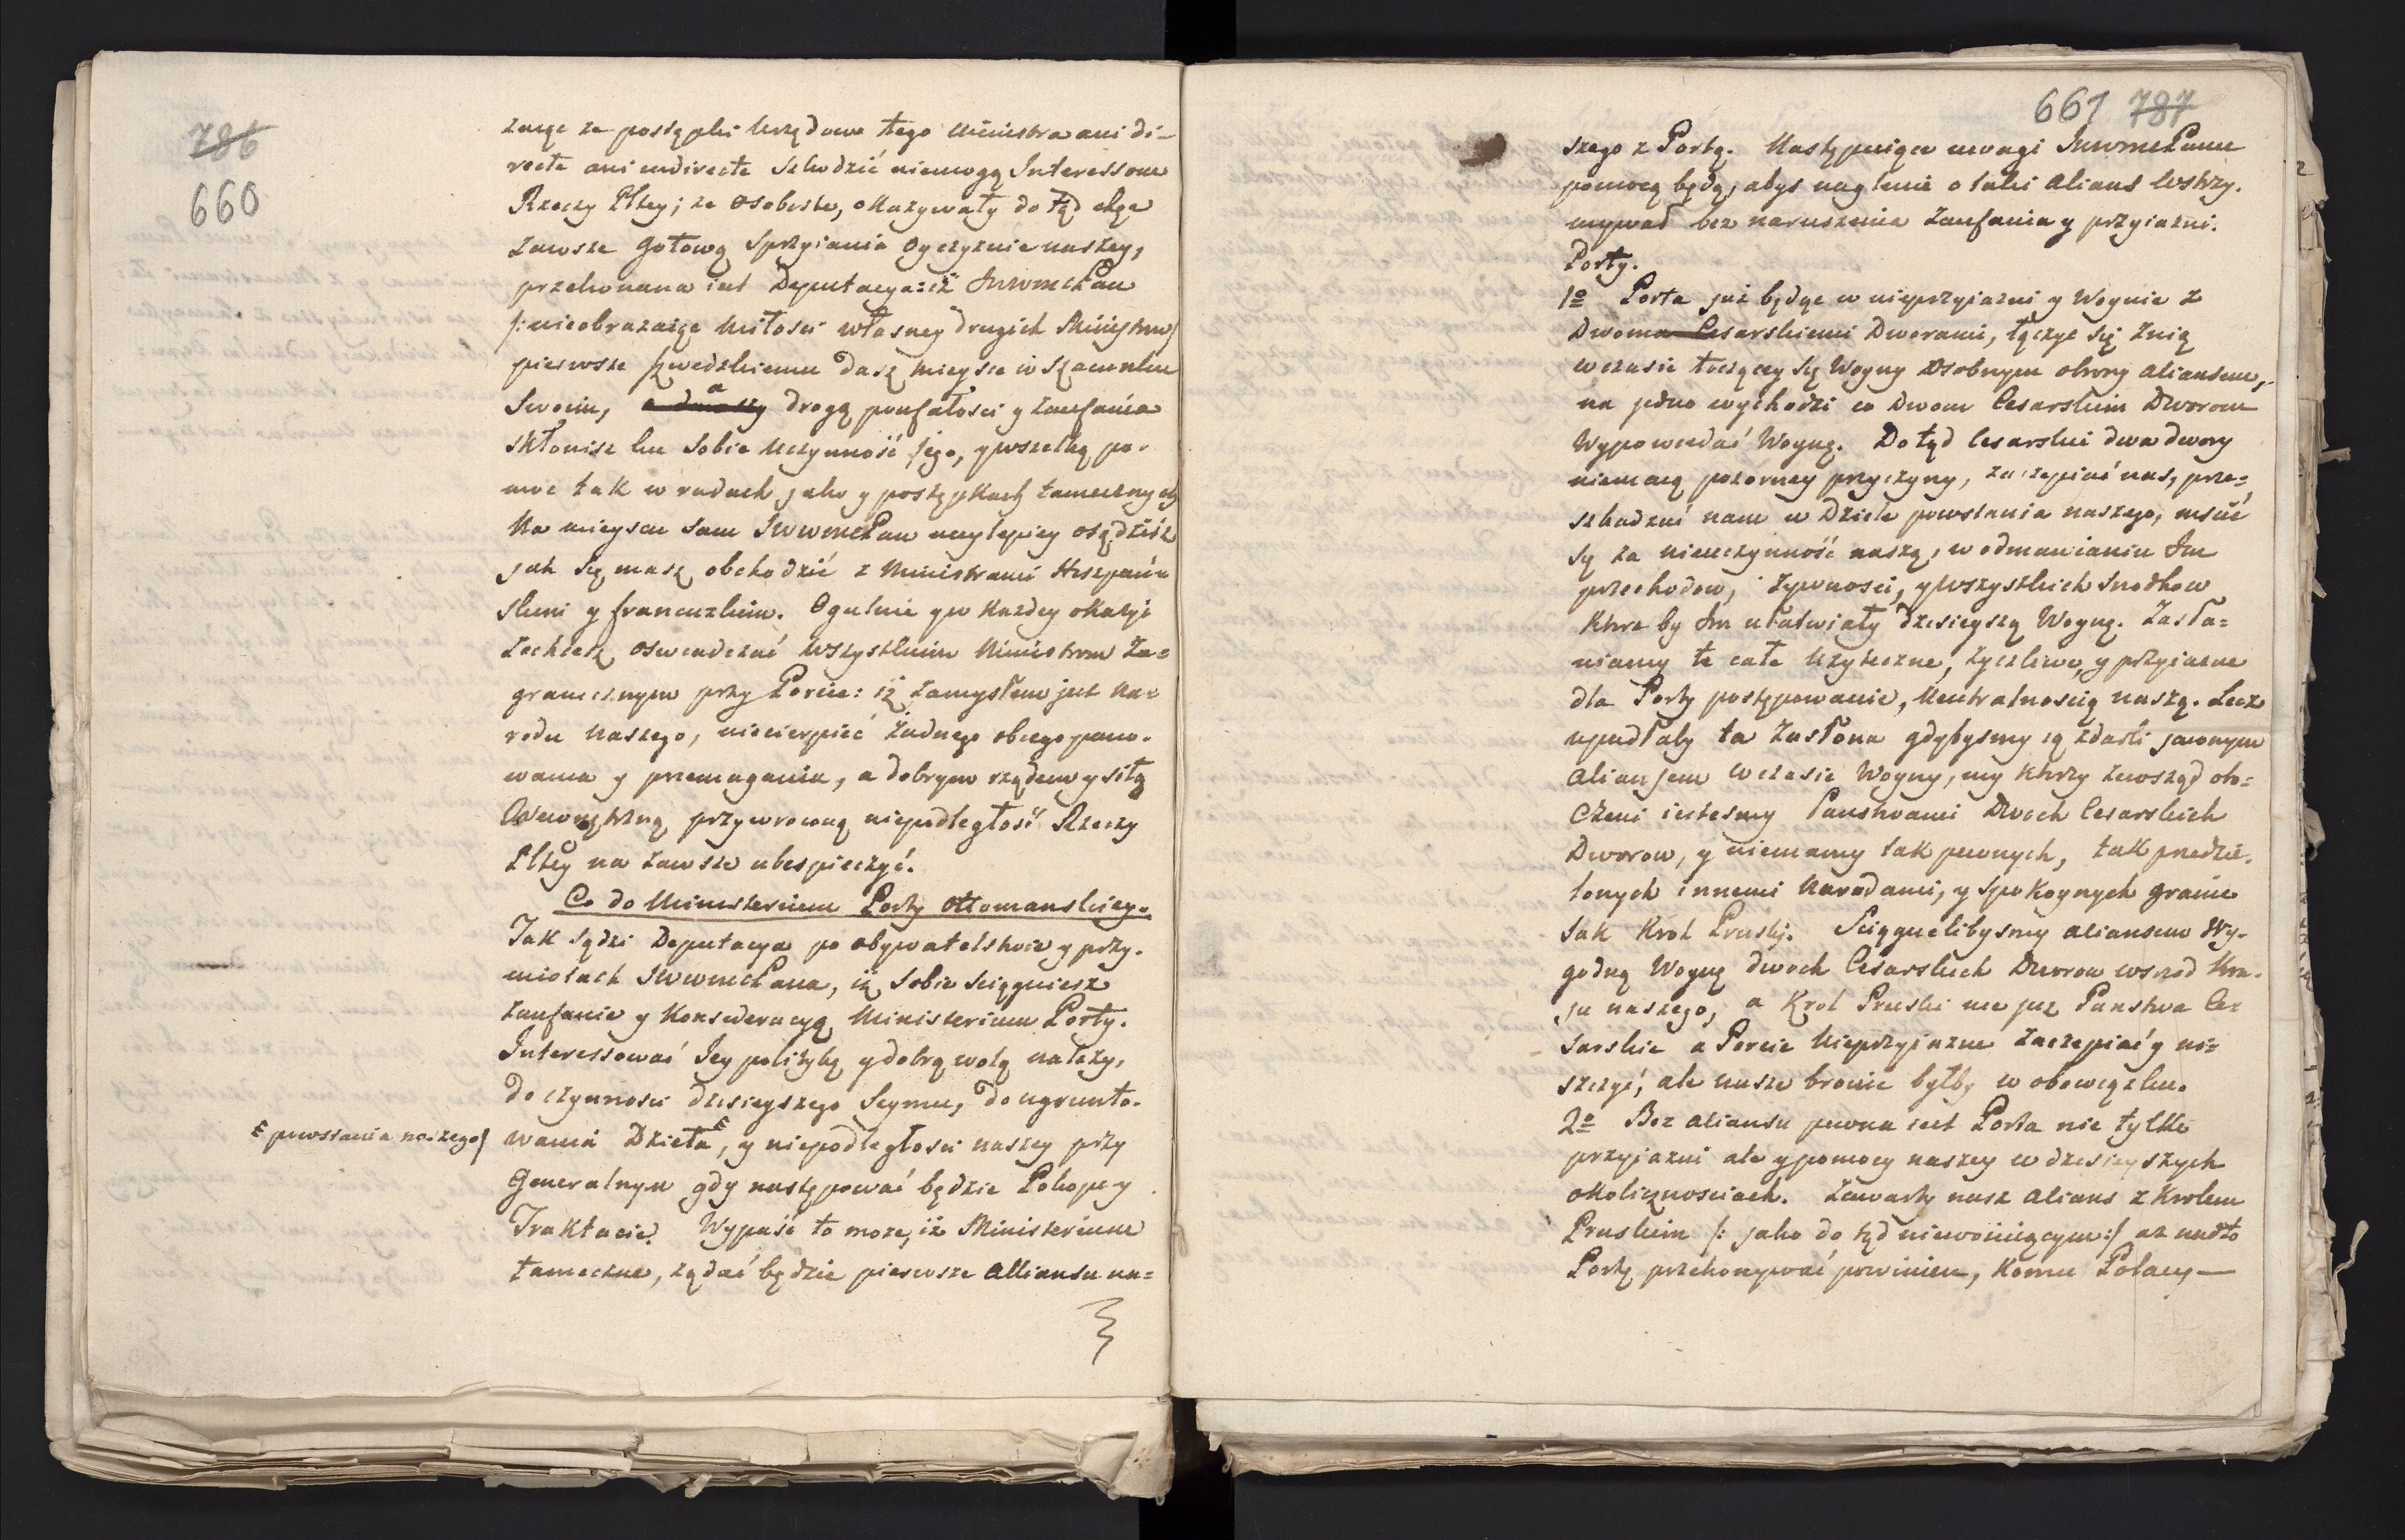 786
660
znąc ze postępki Urzędowe tego Ministra ani di-
recte ani indirecte szkodzić niemogą Interessom
Rzeczy Pltey; ze osobiste, okazywały do tąd chęc
zawsze gotową sprzyiania Oyczyznie naszey,
przekonana iest Deputacya: iż JWWmcPan
/: nieobrazaiąc miłosci własney drugich Ministrow/
pierwsze szwedzkiemu dasz mieysce w szacunku
Swoim, a drogą poufałosci y zaufania
skłonisz ku sobie uczynność jego, y wszelką po-
moc tak w radach jako y postępkach tamecznych
Na mieyscu sam JWWmcPan naylepiey osądzisz
jak się masz obchodzić z Ministrami Hiszpań-
skim y francuzkim. Ogulnie y w każdey okazyi
zechcesz oswiadczać wszystkim Ministrom Za-
granicznym przy Porcie: iż zamysłem jest Na-
rodu Naszego, niecierpieć żadnego obcego pano-
wania y przemagania, a dobrym rządem y siłą
Wewnętrzną przywroconą niepodległość Rzeczy
Pltey na zawsze ubespieczyć.
Co do Ministerium Porty Ottomanskiey.
Tak sądzi Deputacya po obywatelstwie y przy-
miotach JWWmcPana, iż sobie sciągniesz
zaufanie y Konsideracyą Ministerium Porty.
Interessować Jey politykę y dobrą wolę należy,
do czynnosci dzisieyszego Seymu, do ugrunto-
powstania naszego/
wania Dzieła, y niepodległosci naszey przy
Generalnym gdy następować będzie Pokoju
Traktacie. Wypaść to może, iż Ministerium
tameczne, żądać będzie pierwsze Alliansu na-
661 787
szego z Portą. Następuiące uwagi JWWmcPanu
pomocą będą, abyś naglenie o taki alians wstrzy-
mywał bez naruszenia zaufania y przyiazni.
Porty.
1o Porta już będąc w nieprzyiazni y Woynie z
Dwoma Cesarskiemi Dworami, łączyć się z nią
w czasie toczącey się Woyny osobnym obrony aliansem,
na jedno wychodzi co Dwom Cesarskim Dworom
Wypowiedać Woynę. Do tąd Cesarskie dwa dwory
niemaią pozorney przyczyny, zaczepiać nas, prze-
szkadzać nam w Dziele powstania naszego, mscić
się za nieuczynność naszą, w odmawianiu Im
przechodow, żywnosci, y wszystkich srodkow
ktore by Im ułatwiały dzisieyszą Woynę. Zasła-
niamy te całe użyteczne, życzliwe, y przyiazne
dla Porty postępowanie, Neutralnoscią naszą. Lecz
upadłaby ta zasłona gdybysmy ią zdarli jawnym
aliansem w czasie Woyny, my ktorzy zewsząd oto-
czeni iestesmy Panstwami Dwoch Cesarskich
Dworow, y niemamy tak pewnych, tak przedzie-
lonych innemi Narodami, y spokoynych granic
jak Krol Pruski. Sciągnelibysmy aliansem Wy-
godną Woynę dwoch Cesarskich Dworow wsrod Kra-
ju naszego, a Krol Pruski nie juz Panstwa Ce-
sarskie a Porcie Nieprzyiazne zaczepiać y ni-
szczyć, ale nasze bronić byłby w obowiązku.
2o Bez aliansu pewna iest Porta nie tylko
przyiazni ale y pomocy naszey w dzisieyszych
okolicznosciach. Zawarty nasz alians z Krolem
Pruskim /: jako do tąd niewoiuiącym :/ az nadto
Portę przekonywać powinien, komu Polacy —